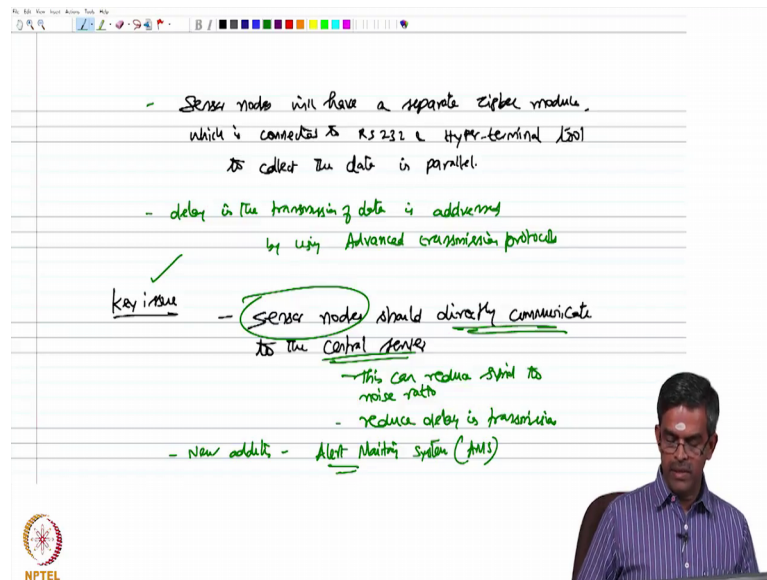 File Edit View Insert Actions Tools Help
B I
- Sensor nodes will have a separate zigbee module,
which is connected to RS232 & Hyper-terminal tool
to collect the data in parallel.
- delay in the transmission of data is addressed
by using Advanced transmission protocols
key issue - sensor nodes should directly communicate
to the central server
- This can reduce signal to
noise ratio
- reduce delay in transmission
- New addition - Alert Monitoring System (AMS)
NPTEL